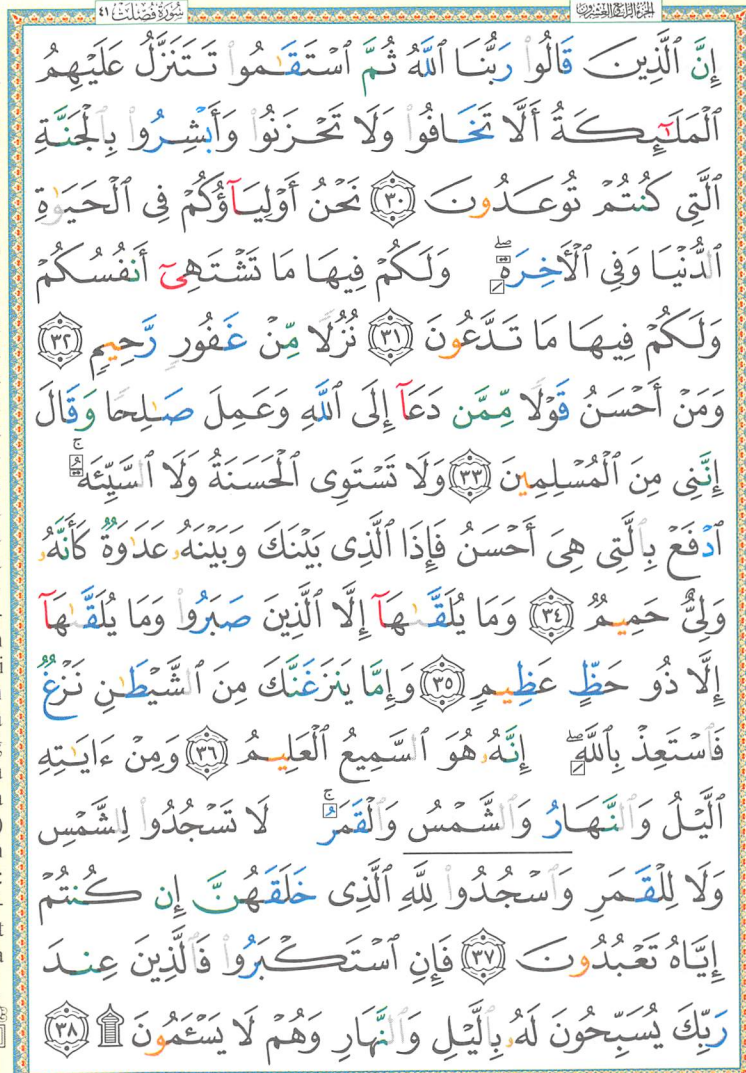 الجزء الرابع والعشرون
سورة فصلت ٤١
إِنَّ ٱلَّذِينَ قَالُوا۟ رَبُّنَا ٱللَّهُ ثُمَّ ٱسْتَقَٰمُوا۟ تَتَنَزَّلُ عَلَيْهِمُ
ٱلْمَلَٰٓئِكَةُ أَلَّا تَخَافُوا۟ وَلَا تَحْزَنُوا۟ وَأَبْشِرُوا۟ بِٱلْجَنَّةِ
ٱلَّتِى كُنتُمْ تُوعَدُونَ ٣٠ نَحْنُ أَوْلِيَآؤُكُمْ فِى ٱلْحَيَوٰةِ
ٱلدُّنْيَا وَفِى ٱلْأَخِرَةِۖ وَلَكُمْ فِيهَا مَا تَشْتَهِىٓ أَنفُسُكُمْ
وَلَكُمْ فِيهَا مَا تَدَّعُونَ ٣١ نُزُلًا مِّنْ غَفُورٍ رَّحِيمٍ ٣٢
وَمَنْ أَحْسَنُ قَوْلًا مِّمَّن دَعَآ إِلَى ٱللَّهِ وَعَمِلَ صَٰلِحًا وَقَالَ
إِنَّنِى مِنَ ٱلْمُسْلِمِينَ ٣٣ وَلَا تَسْتَوِى ٱلْحَسَنَةُ وَلَا ٱلسَّيِّئَةُۚ
ٱدْفَعْ بِٱلَّتِى هِىَ أَحْسَنُ فَإِذَا ٱلَّذِى بَيْنَكَ وَبَيْنَهُۥ عَدَٰوَةٌ كَأَنَّهُۥ
وَلِىٌّ حَمِيمٌ ٣٤ وَمَا يُلَقَّىٰهَآ إِلَّا ٱلَّذِينَ صَبَرُوا۟ وَمَا يُلَقَّىٰهَآ
إِلَّا ذُو حَظٍّ عَظِيمٍ ٣٥ وَإِمَّا يَنزَغَنَّكَ مِنَ ٱلشَّيْطَٰنِ نَزْغٌ
فَٱسْتَعِذْ بِٱللَّهِۖ إِنَّهُۥ هُوَ ٱلسَّمِيعُ ٱلْعَلِيمُ ٣٦ وَمِنْ ءَايَٰتِهِ
ٱلَّيْلُ وَٱلنَّهَارُ وَٱلشَّمْسُ وَٱلْقَمَرُۚ لَا تَسْجُدُوا۟ لِلشَّمْسِ
وَلَا لِلْقَمَرِ وَٱسْجُدُوا۟ لِلَّهِ ٱلَّذِى خَلَقَهُنَّ إِن كُنتُمْ
إِيَّاهُ تَعْبُدُونَ ٣٧ فَإِنِ ٱسْتَكْبَرُوا۟ فَٱلَّذِينَ عِندَ
رَبِّكَ يُسَبِّحُونَ لَهُۥ بِٱلَّيْلِ وَٱلنَّهَارِ وَهُمْ لَا يَسْـَٔمُونَ ۩ ٣٨